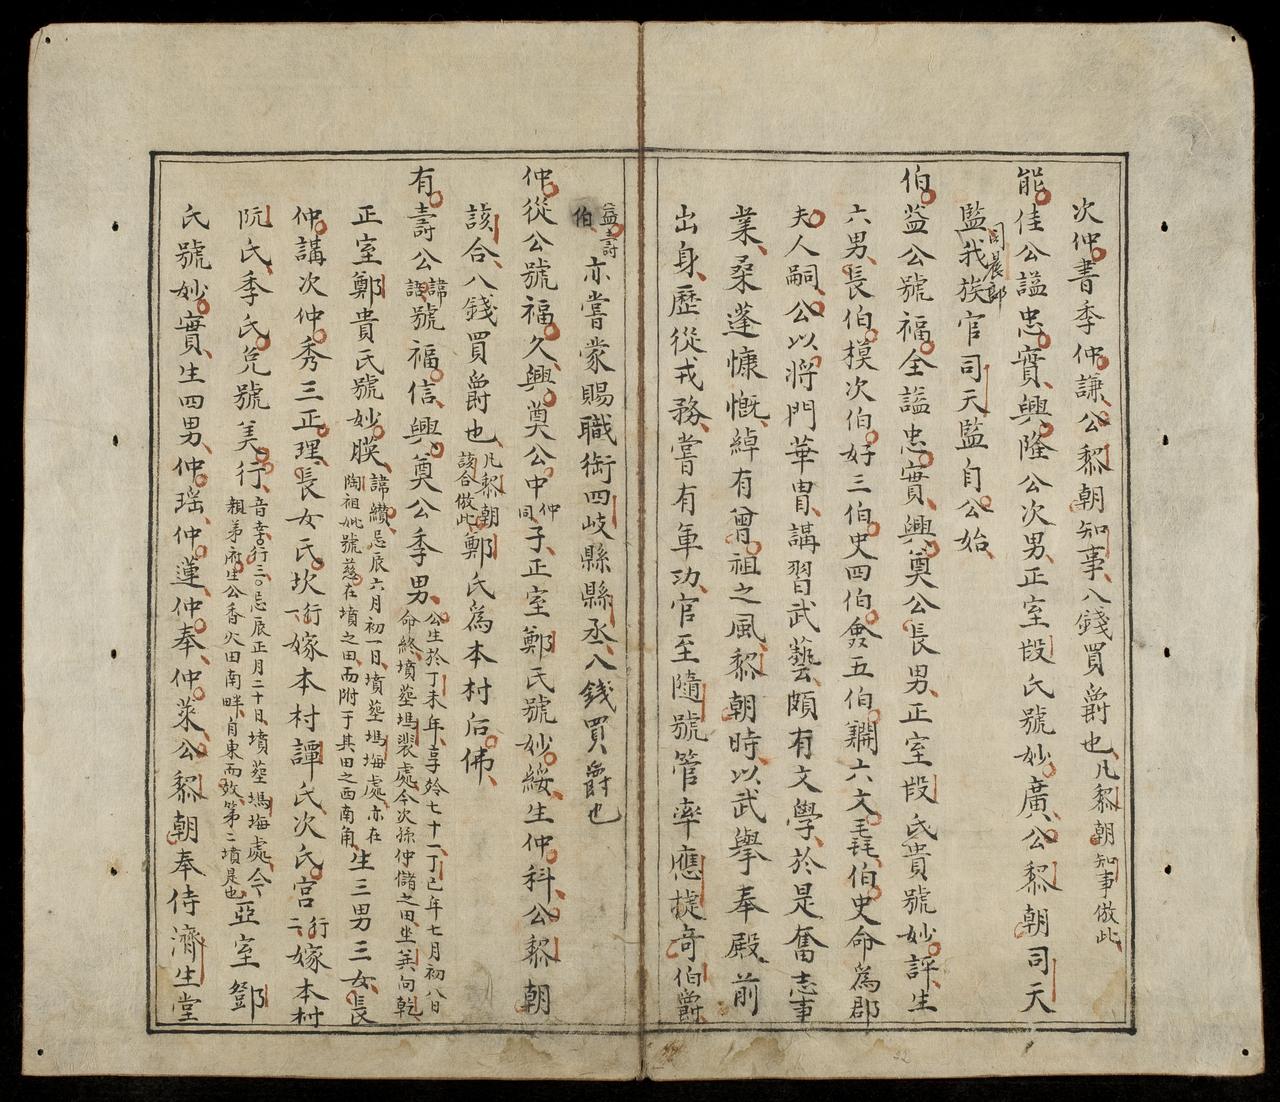 次仲書季仲謙公黎朝知事八錢買爵也凡黎朝知事倣此
能佳公謚忠實興隆公次男正室段氏號妙廣公黎朝司天
監我族官司天監自公始
司晨郎
伯益公號福全謚忠實興奠公長男正室段氏貴號妙評生
六男長伯模次伯好三伯史四伯㑹五伯 六文 伯史命爲郡
夫人嗣公以將門華冑講習武藝頗有文學於是奮志事
業桑蓬慷慨綽有曾祖之風黎朝時以武擧奉殿前
出身歷從戎務嘗有軍功官至隨號管率應 奇伯爵
益壽
伯亦嘗蒙賜職銜四岐縣縣丞八錢買爵也
仲從公號福久興奠公中仲同子正室鄭氏號妙綏生仲科公黎朝
該合八錢買爵也凡黎朝該合倣此鄭氏爲本村后佛
有壽公諱 號福信興奠公季男公生於丁未年享齡七十一丁巳年七月初八日
命終墳塟塢裴處今次孫仲儲之田坐巽向乾
正室鄭貴氏號妙膜諱纉忌辰六月初一日墳塟塢塸處亦在
陶祖妣號慈在墳之田而附于其田之西南角生三男三女長
仲講次仲秀三正理長女氏坎行一嫁本村譚氏次氏宮行二嫁本村
阮氏季氏兌號美行音幸行三忌辰正月二十日墳塟塢塸處今
親弟府生公香火田南畔自東而 第二墳是也亞室鄧
氏號妙實生四男仲瑶仲蓮仲奉仲萊公黎朝奉侍濟生堂